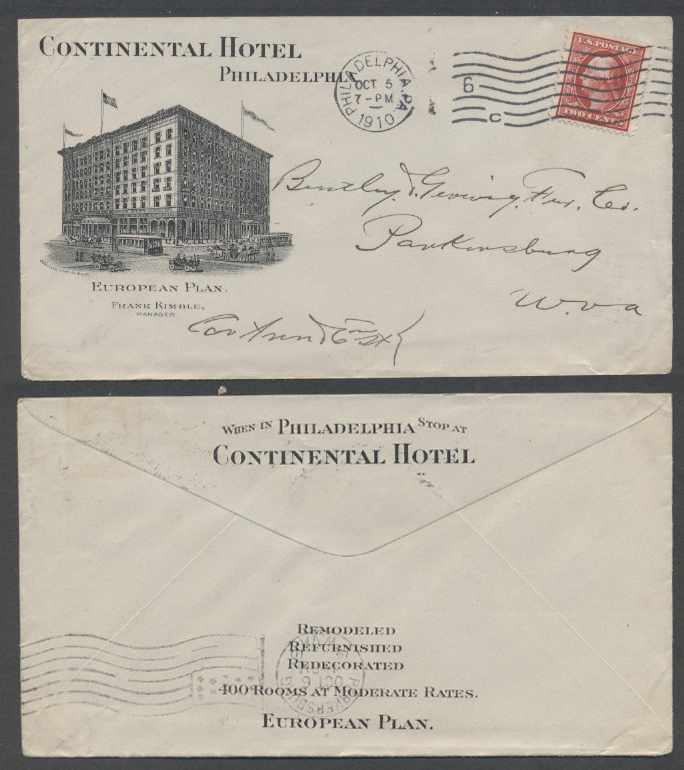 CONTINENTAL HOTEL
PHILADELPHIA
PHILADELPHIA, PA.
OCT 5
7-PM
1910
6
C
U.S. POSTAGE
TWO CENTS
Parkersburg
W. Va
EUROPEAN PLAN.
FRANK KIMBLE,
MANAGER.
Cor Ann & 6th St
WHEN IN PHILADELPHIA STOP AT
CONTINENTAL HOTEL
REMODELED
REFURNISHED
REDECORATED
400 ROOMS AT MODERATE RATES.
EUROPEAN PLAN.
OCT 6